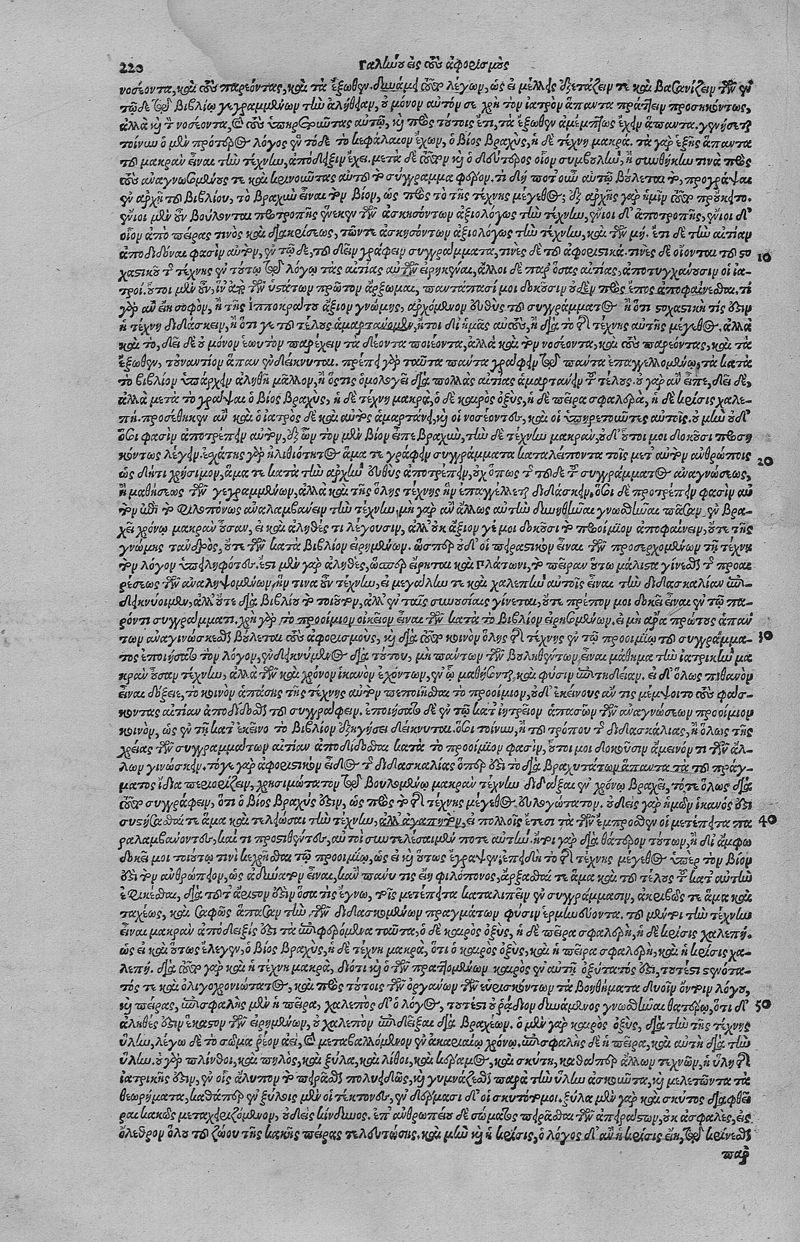 220 Γαλίωοῦ εἰς τοὺς ἀφορισμοὺς
νοσέοντα, καὶ τοὺς παρεόντας, καὶ τὰ ἔξωθεν. δυνάμει τοῦτο λέγων, ὡς εἰ μέλλεις ἐξετάζειν τε καὶ βασανίζειν τῶν ἐν
τῷδε τῷ βιβλίῳ γεγραμμένων τὴν ἀλήθειαν, οὐ μόνον αὐτόν σε χρὴ τὸν ἰατρὸν ἅπαντα πράττειν προσηκόντως,
ἀλλὰ καὶ τὸν νοσέοντα, καὶ τοὺς ὑπηρετοῦντας αὐτῷ, καὶ πρὸς τούτοις ἔτι, τὰ ἔξωθεν ἀμέμπτως ἔχειν ἅπαντα. γενήσεται
τοίνυν ὁ μὲν πρότερος λόγος ἐν τῷδε τὸ κεφάλαιον ἔχων, ὁ βίος βραχὺς, ἡ δὲ τέχνη μακρά. τὰ γὰρ ἑξῆς ἅπαντα
τοῦ μακρὰν εἶναι τὴν τέχνην, ἀπόδειξιν ἔχει. μετὰ δὲ τοῦτον καὶ ὁ δεύτερος οἷον συμβουλὴν, ἢ συνθήκην τινὰ πρὸς
τοὺς ἀναγνωσομένους τε καὶ κρινοῦντας αὐτοῦ τὸ σύγγραμμα φέρων. τί δή ποτ' οὖν αὐτῷ βούλεται τὸ, προγράψαι
ἐν ἀρχῇ τοῦ βιβλίου, τὸ βραχὺν εἶναι τὸν βίον, ὡς πρὸς τὸ τῆς τέχνης μέγεθος; ἐξ ἀρχῆς γὰρ ἡμῖν τοῦτο πρόκειται.
ἔνιοι μὲν οὖν βούλονται προτροπῆς ἕνεκεν τῶν ἀσκησόντων ἀξιολόγως τὴν τέχνην, ἔνιοι δ' ἀποτροπῆς, ἔνιοι δ'
οἷον ἀπὸ πείρας τινὸς καὶ διακρίσεως, τῶν τε ἀσκησόντων ἀξιολόγως τὴν τέχνην, καὶ τῶν μή. ἔτι δὲ τὴν αἰτίαν
ἀποδιδόναι φασὶν αὐτὸν, ἐν τῷδε, τοῦ δεῖν γράφειν συγγράμματα, τινὲς δὲ τὰ ἀφοριστικά. τινὲς δὲ οἴονται τοῦ στο 10
χαστικὸν τῆς τέχνης ἐν τούτῳ τῷ λόγῳ τὰς αἰτίας αὐτὸν εἰρηκέναι, ἄλλοι δὲ παρ' ὅσας αἰτίας, ἀποτυγχάνουσιν οἱ ἰα-
τροί. οὗτοι μὲν οὖν, ἵν' ἀπὸ τῶν ὑστάτων πρῶτον ἄρξωμαι, παντάπασί μοι δοκοῦσιν οὐδὲν πρὸς ἔπος ἀποφαίνεσθαι. τί
γὰρ ἂν εἴη σοφὸν, ἢ τῆς ἱπποκράτους ἄξιον γνώμης, ἀρχόμενον εὐθὺς τοῦ συγγράμματος ἢ ὅτι στοχαστική τίς ἐστιν
ἡ τέχνη διδάσκειν, ἢ ὅτι γε τοῦ τέλους ἁμαρτάνομεν, ἤτοι δι' ἡμᾶς αὐτοὺς, ἢ διὰ τὸ τῆς τέχνης αὐτῆς μέγεθος. ἀλλὰ
καὶ τὸ, δεῖ δὲ οὐ μόνον ἑωυτὸν παρέχειν τὰ δέοντα ποιέοντα, ἀλλὰ καὶ τὸν νοσέοντα, καὶ τοὺς παρεόντας, καὶ τὰ
ἔξωθεν, τοὐναντίον ἅπαν ἐνδείκνυται. πρέπει γὰρ ταῦτα πάντα γράφειν τῷ πάντα ἐπαγγελλομένῳ, τὰ κατὰ
τὸ βιβλίον ὑπάρχειν ἀληθῆ μᾶλλον, ἢ ὅστις ὁμολογεῖ διὰ πολλὰς αἰτίας ἁμαρτάνειν τοῦ τέλους. οὐ γὰρ ἂν εἶπε, δεῖ δὲ,
ἀλλὰ μετὰ τὸ γράψαι, ὁ βίος βραχὺς, ἡ δὲ τέχνη μακρὰ, ὁ δὲ καιρὸς ὀξὺς, ἡ δὲ πεῖρα σφαλερὰ, ἡ δὲ κρίσις χαλε-
πή. προσέθηκεν ἂν καὶ ὁ ἰατρὸς δὲ καὶ αὐτὸς ἁμαρτάνει, καὶ οἱ νοσέοντες, καὶ οἱ ὑπηρετοῦντες αὐτοῖς. οὐ μὴν οὐδ'
ὅσοι φασὶν ἀποτρέπειν αὐτὸν, ἐξ ὧν τὸν μὲν βίον εἶπε βραχὺν, τὴν δὲ τέχνην μακρὰν, οὐδ' οὗτοί μοι δοκοῦσι προση
κόντως λέγειν. ἐσχάτης γὰρ ἠλιθιότητος ἅμα τε γράφειν συγγράμματα καταλείποντα τοῖς μετ' αὐτὸν ἀνθρώποις
ὡς δή τι χρήσιμον, ἅμα τε κατὰ τὴν ἀρχὴν εὐθὺς ἀποτρέπειν, οὐχ ὅπως τῆς τοῦδε τοῦ συγγράμματος ἀναγνώσεως, 20
ἢ μαθήσεως τῶν γεγραμμένων, ἀλλὰ καὶ τῆς ὅλης τέχνης ἣν ἐπαγγέλλεται διδάσκειν, ὅσοι δὲ προτρέπειν φασὶν αὐ
τὸν ἐπὶ τὸ φιλοπόνως ἀναλαμβάνειν τὴν τέχνην, μὴ γὰρ ἂν ἄλλως αὐτὴν δυνηθῆναι γνωσθῆναι πᾶσαν ἐν βρα-
χεῖ χρόνῳ μακρὰν οὖσαν, εἰ καὶ ἀληθές τι λέγουσιν, ἀλλ' οὐκ ἄξιόν γέ μοι δοκοῦσι τὸ προοίμιον ἀποφαίνειν, οὔτε τῆς
γνώμης τἀνδρὸς, οὔτε τῶν κατὰ βιβλίον εἰρημένων. ὥσπερ οὐδ' οἱ πειραστικὸν εἶναι τῶν προσερχομένων τῇ τέχνῃ
τὸν λόγον ὑπειληφότες. ἔστι μὲν γὰρ ἀληθὲς, ὥσπερ εἴρηται καὶ Πλάτωνι, τὸ πεῖραν οὕτω μάλιστα γίνεσθαι τῆς προαι
ρέσεως τῶν ἀναληψομένων, ἥν τινα οὖν τέχνην, εἰ μεγάλην τε καὶ χαλεπὴν αὐτοῖς εἶναι τὴν διδασκαλίαν ἐπι-
δεικνύοιμεν, ἀλλ' οὔτε διὰ βιβλίου τὸ τοιοῦτον, ἀλλ' ἐν ταῖς συνουσίαις γίνεται, οὔτε πρέπον μοι δοκεῖ εἶναι ἐν τῷ πα-
ρόντι συγγράμματι. χρὴ γὰρ τὸ προοίμιον οἰκεῖον εἶναι τῶν κατὰ τὸ βιβλίον εἰρησομένων. εἰ μὴ ἄρα πρώτους ἁπάν
των ἀναγινώσκεσθαι βούλεται τοὺς ἀφορισμοὺς, καὶ διὰ τοῦτο κοινὸν ὅλης τῆς τέχνης ἐν τῷ προοιμίῳ τοῦ συγγράμμα- 30
τος ἐποιήσατο τὸν λόγον, ἐνδεικνύμενος διὰ τούτου, μὴ πάντων τῶν βουληθέντων, εἶναι μάθημα τὴν ἰατρικὴν μα
κρὰν οὖσαν τέχνην, ἀλλὰ τῶν καὶ χρόνον ἱκανὸν ἐχόντων, ἐν ᾧ μαθήσονται, καὶ φύσιν ἐπιτηδείαν. εἰ δ' ὅλως πιθανὸν
εἶναι δόξειε, τὸ κοινὸν ἁπάσης τῆς τέχνης αὐτὸν πεποιῆσθαι τὸ προοίμιον, οὐδ' ἐκείνους ἄν τις μέμψοιτο τοὺς φάσ-
κοντας αἰτίαν ἀποδεδόσθαι τοῦ συγγράφειν. ἐποιήσατο δὲ ἐν τῷ κατ' ἰητρεῖον ἁπασῶν τῶν ἀναγνώσεων προοίμιον
κοινὸν, ὡς ἐν τῇ κατ' ἐκεῖνο τὸ βιβλίον ἐξηγήσει δείκνυται. ὅσοι τοίνυν, ἢ τοῦ τρόπου τῆς διδασκαλίας, ἢ ὅλως τῆς
χρείας τῶν συγγραμμάτων αἰτίαν ἀποδίδοσθαι κατὰ τὸ προοίμιον φασὶν, οὗτοί μοι δοκοῦσιν ἄμεινόν τι τῶν ἄλ-
λων γινώσκειν. τό γε γὰρ ἀφοριστικὸν εἶδος τῆς διδασκαλίας ὅπερ ἐστὶ τὸ διὰ βραχυτάτων ἅπαντα τὰ τοῦ πράγ-
ματος ἴδια περιορίζειν, χρησιμώτατον τῷ βουλομένῳ μακρὰν τέχνην διδάξαι ἐν χρόνῳ βραχεῖ, τό τε ὅλως διὰ
τοῦτο συγγράφειν, ὅτι ὁ βίος βραχὺς ἐστιν, ὡς πρὸς τὸ τῆς τέχνης μέγεθος, εὐλογώτατον. οὐδεὶς γὰρ ἡμῶν ἱκανὸς ἐστὶ
συστήσασθαί τε ἅμα καὶ τελειῶσαι τὴν τέχνην, ἀλλ' ἀγαπητὸν, εἰ πολλοῖς ἔτεσι τὰ τῶν ἔμπροσθεν οἱ μετέπειτα πα 40
ραλαμβάνοντες, καί τι προστιθέντες, αὐτοὶ συντελέσαιμέν ποτε αὐτήν. ἤτοι γὰρ διὰ θάτερον τούτων, ἢ δι' ἄμφω
δοκεῖ μοι τοιούτῳ τινὶ κεχρῆσθαι τῷ προοιμίῳ, ὡς εἰ καὶ οὕτως ἔγραψεν, ἐπειδὴ τὸ τῆς τέχνης μέγεθος ὑπὲρ τὸν βίον
ἐστὶ τὸν ἀνθρώπειον, ὡς ἀδύνατον εἶναι, κἂν πάνυ τις εἴη φιλόπονος, ἄρξασθαί τε ἅμα καὶ τοῦ τέλους τοῦ κατ' αὐτὴν
ἐφικέσθαι, διὰ τοῦτ' ἄριστόν ἐστιν ὅσα τις ἔγνω, τοῖς μετέπειτα καταλιπεῖν ἐν συγγράμμασιν, ἀκριβῶς τε ἅμα καὶ
ταχέως, καὶ σαφῶς ἅπασαν τὴν τῶν διδασκομένων πραγμάτων φύσιν ἑρμηνεύοντα. τοῦ μέντοι τὴν τέχνην
εἶναι μακρὰν ἀπόδειξίς ἐστι τὰ ἐπιφερόμενα ταῦτα, ὁ δὲ καιρὸς ὀξὺς, ἡ δὲ πεῖρα σφαλερὴ, ἡ δὲ κρίσις χαλεπή.
ὡς εἰ καὶ οὕτως ἔλεγεν, ὁ βίος βραχὺς, ἡ δὲ τέχνη μακρὰ, ὅτι ὁ καιρὸς ὀξὺς, καὶ ἡ πεῖρα σφαλερὴ, καὶ ἡ κρίσις χα-
λεπή. διὰ τοῦτο γὰρ καὶ ἡ τέχνη μακρὰ, διότι καὶ ὁ τῶν πραττομένων καιρὸς ἐν αὐτῇ ὀξύτατός ἐστι, τουτέστι στενότα-
τός τε καὶ ὀλιγοχρονιώτατος, καὶ πρὸς τούτοις τῶν ὀργάνων τῶν εὑρισκόντων τὰ βοηθήματα δυοῖν ὄντοιν λόγου,
καὶ πείρας, ἐπισφαλὴς μὲν ἡ πεῖρα, χαλεπὸς δ' ὁ λόγος, τουτέστι οὐ ῥᾴδιον δυνάμενος γνωσθῆναι θατέρῳ, ὅτι δ' 50
ἀληθές ἐστιν ἕκαστον τῶν εἰρημένων, οὐ χαλεπὸν ἐπιδεῖξαι διὰ βραχέων. ὁ μὲν γὰρ καιρὸς ὀξὺς, διὰ τὴν τῆς τέχνης
ὕλην, λέγω δὲ τὸ σῶμα ῥέον ἀεὶ, καὶ μεταβαλλόμενον ἐν ἀκαριαίῳ χρόνῳ. ἐπισφαλὴς δὲ ἡ πεῖρα, καὶ αὐτὴ διὰ τὴν
ὕλην. οὐ γὰρ πλίνθοι, καὶ πηλὸς, καὶ ξύλα, καὶ λίθοι, καὶ κέραμος, καὶ σκύτη, καθάπερ ἄλλων τεχνῶν, ἡ ὕλη τῆς
ἰατρικῆς ἐστιν, ἐν οἷς ἄλυπον τὸ πειρᾶσθαι πολυειδῶς, καὶ γυμνάζεσθαι παρὰ τὴν ὕλην ἀσκοῦντα, καὶ μελετῶντα τὰ
θεωρήματα, καθάπερ ἐν ξύλοις μὲν οἱ τέκτονες, ἐν δέρμασι δ' οἱ σκυτότομοι. ξύλα μὲν γὰρ καὶ σκύτος διαφθεῖ
ραι κακῶς μεταχειριζόμενον, οὐδεὶς κίνδυνος. ἐπ' ἀνθρωπείου δὲ σώματος πειρᾶσθαι τῶν ἀπειράστων, οὐκ ἀσφαλὲς, εἰς
ὄλεθρον ὅλου τοῦ ζώου τῆς κακῆς πείρας τελευτώσης, καὶ μὴν καὶ ἡ κρίσις, ὁ λόγος δ' ἂν ἡ κρίσις εἴη, τῷ κρίνεσθαι
παρ'